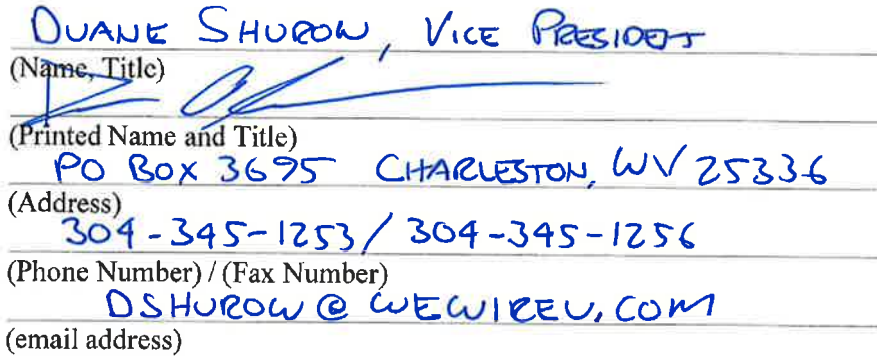 DUANE SHUROW, VICE PRESIDENT
(Name, Title)
(Printed Name and Title)
PO BOX 3695 CHARLESTON, WV 25336
(Address)
304-345-1253/ 304-345-1256
(Phone Number) / (Fax Number)
DSHUROW@WEWIREU.COM
(email address)